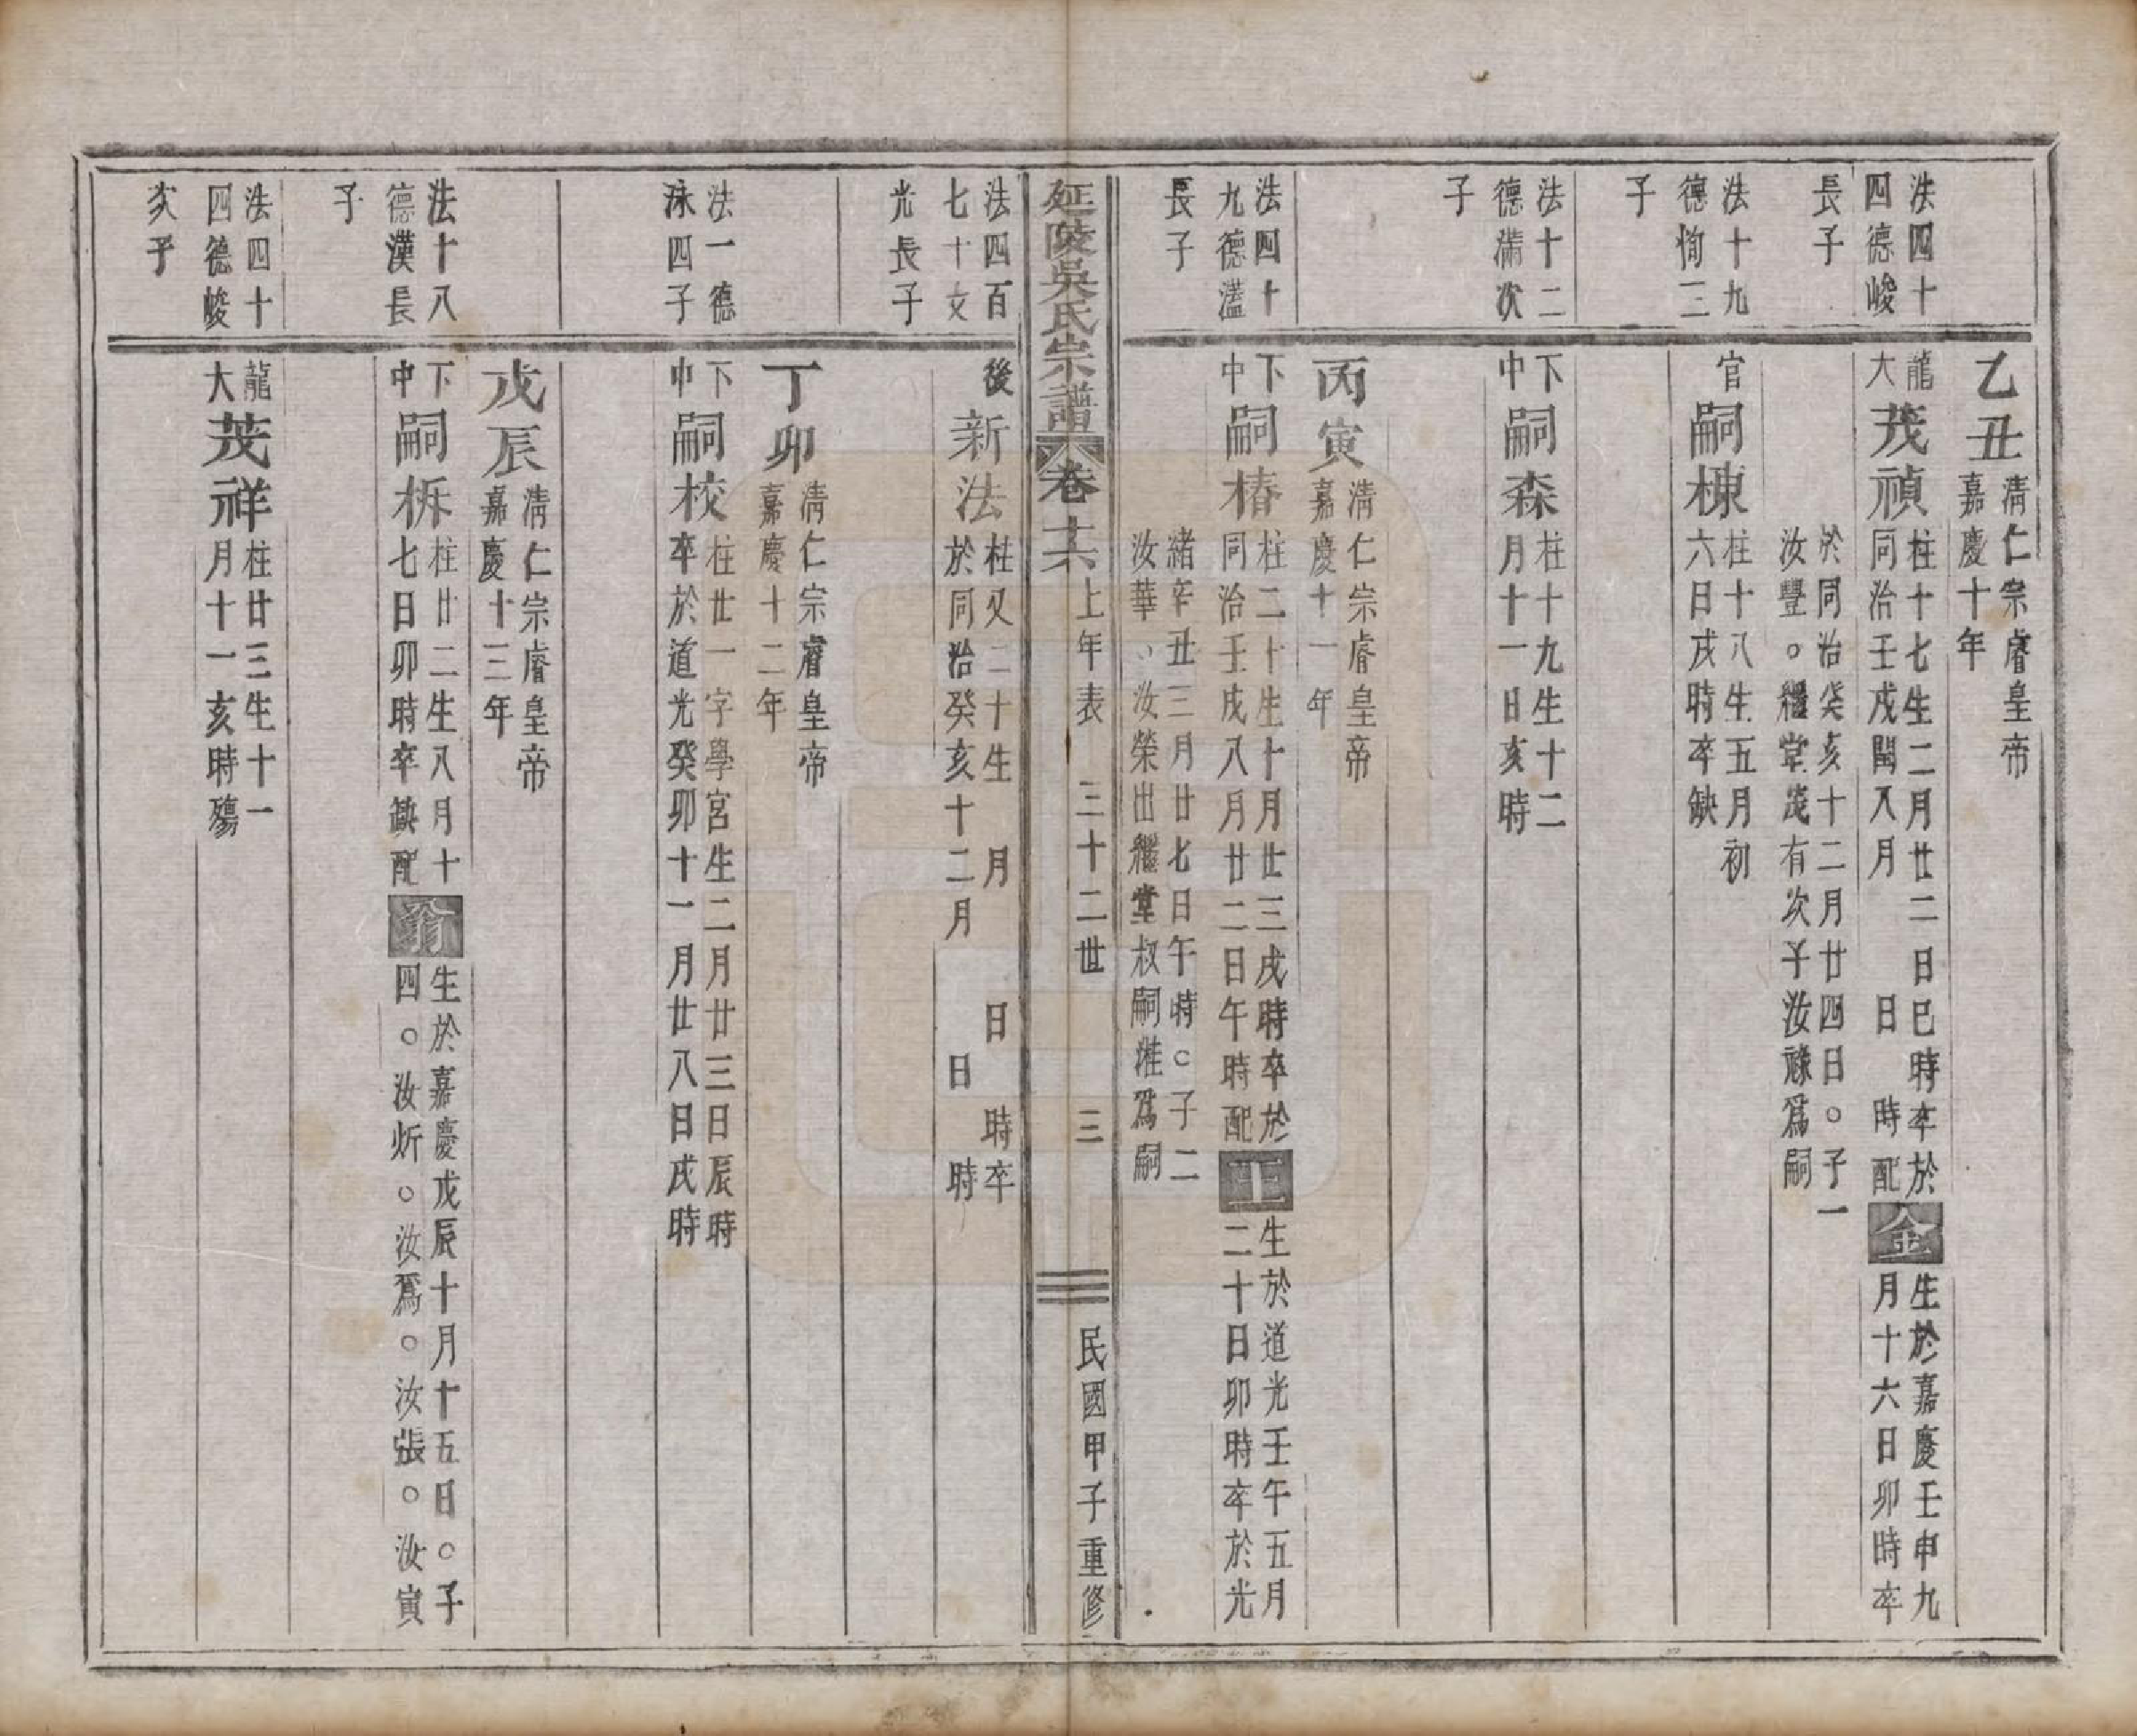 乙丑
清仁宗睿皇帝
嘉慶十年
法四十
四德峻
長子
龍
大
茂禎
柱十七生二月廿二日巳時卒於
同治壬戌閏八月 日 時配
金
生於嘉慶壬申九
月十六日卯時卒
於同治癸亥十二月廿四日。子一
汝豐。繼堂茂有次子汝祿爲嗣
法十九
德恂三
子
官
嗣棟
柱十八生五月初
六日戌時卒缺
法十二
德滿次
子
下
中
嗣森
柱十九生十二
月十一日亥時
丙寅
清仁宗睿皇帝
嘉慶十一年
法四十
九德溋
長子
下
中
嗣椿
柱二十生十月廿三戌時卒於
同治壬戌八月廿二日午時配
王
生於道光壬午五月
二十日卯時卒於光
緒辛丑三月廿七日午時。子二
汝華、汝榮出繼堂叔嗣淮爲嗣
延陵吳氏宗譜
卷十六
上年表 三十二世 三
民國甲子重修
法四百
七十文
光長子
後
新法
柱又二十生 月 日 時卒
於同治癸亥十二月 日 時
丁卯
清仁宗睿皇帝
嘉慶十二年
法一德
泳四子
下
中
嗣校
柱廿一字學宮生二月廿三日辰時
卒於道光癸卯十一月廿八日戌時
戊辰
清仁宗睿皇帝
嘉慶十三年
法十八
德漢長
子
下
中
嗣柝
柱廿二生八月十
七日卯時卒缺配
翁
生於嘉慶戊辰十月十五日。子
四。汝炘。汝爲。汝張。汝寅
法四十
四德峻
次子
龍
大
茂祥
柱廿三生十一
月十一亥時殤